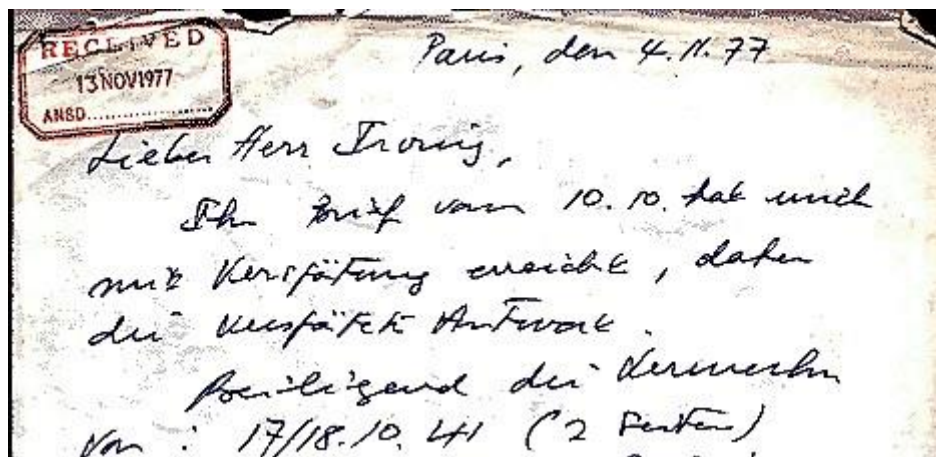 RECEIVED
13 NOV 1977
ANSD....................
Paris, den 4.11.77
Lieber Herr Irving,
Ihr Brief vom 10.10. hat mich
mit Verspätung erreicht, daher
die verspätete Antwort.
Beiliegend die Vermerke
von : 17/18.10.41 (2 Seiten)